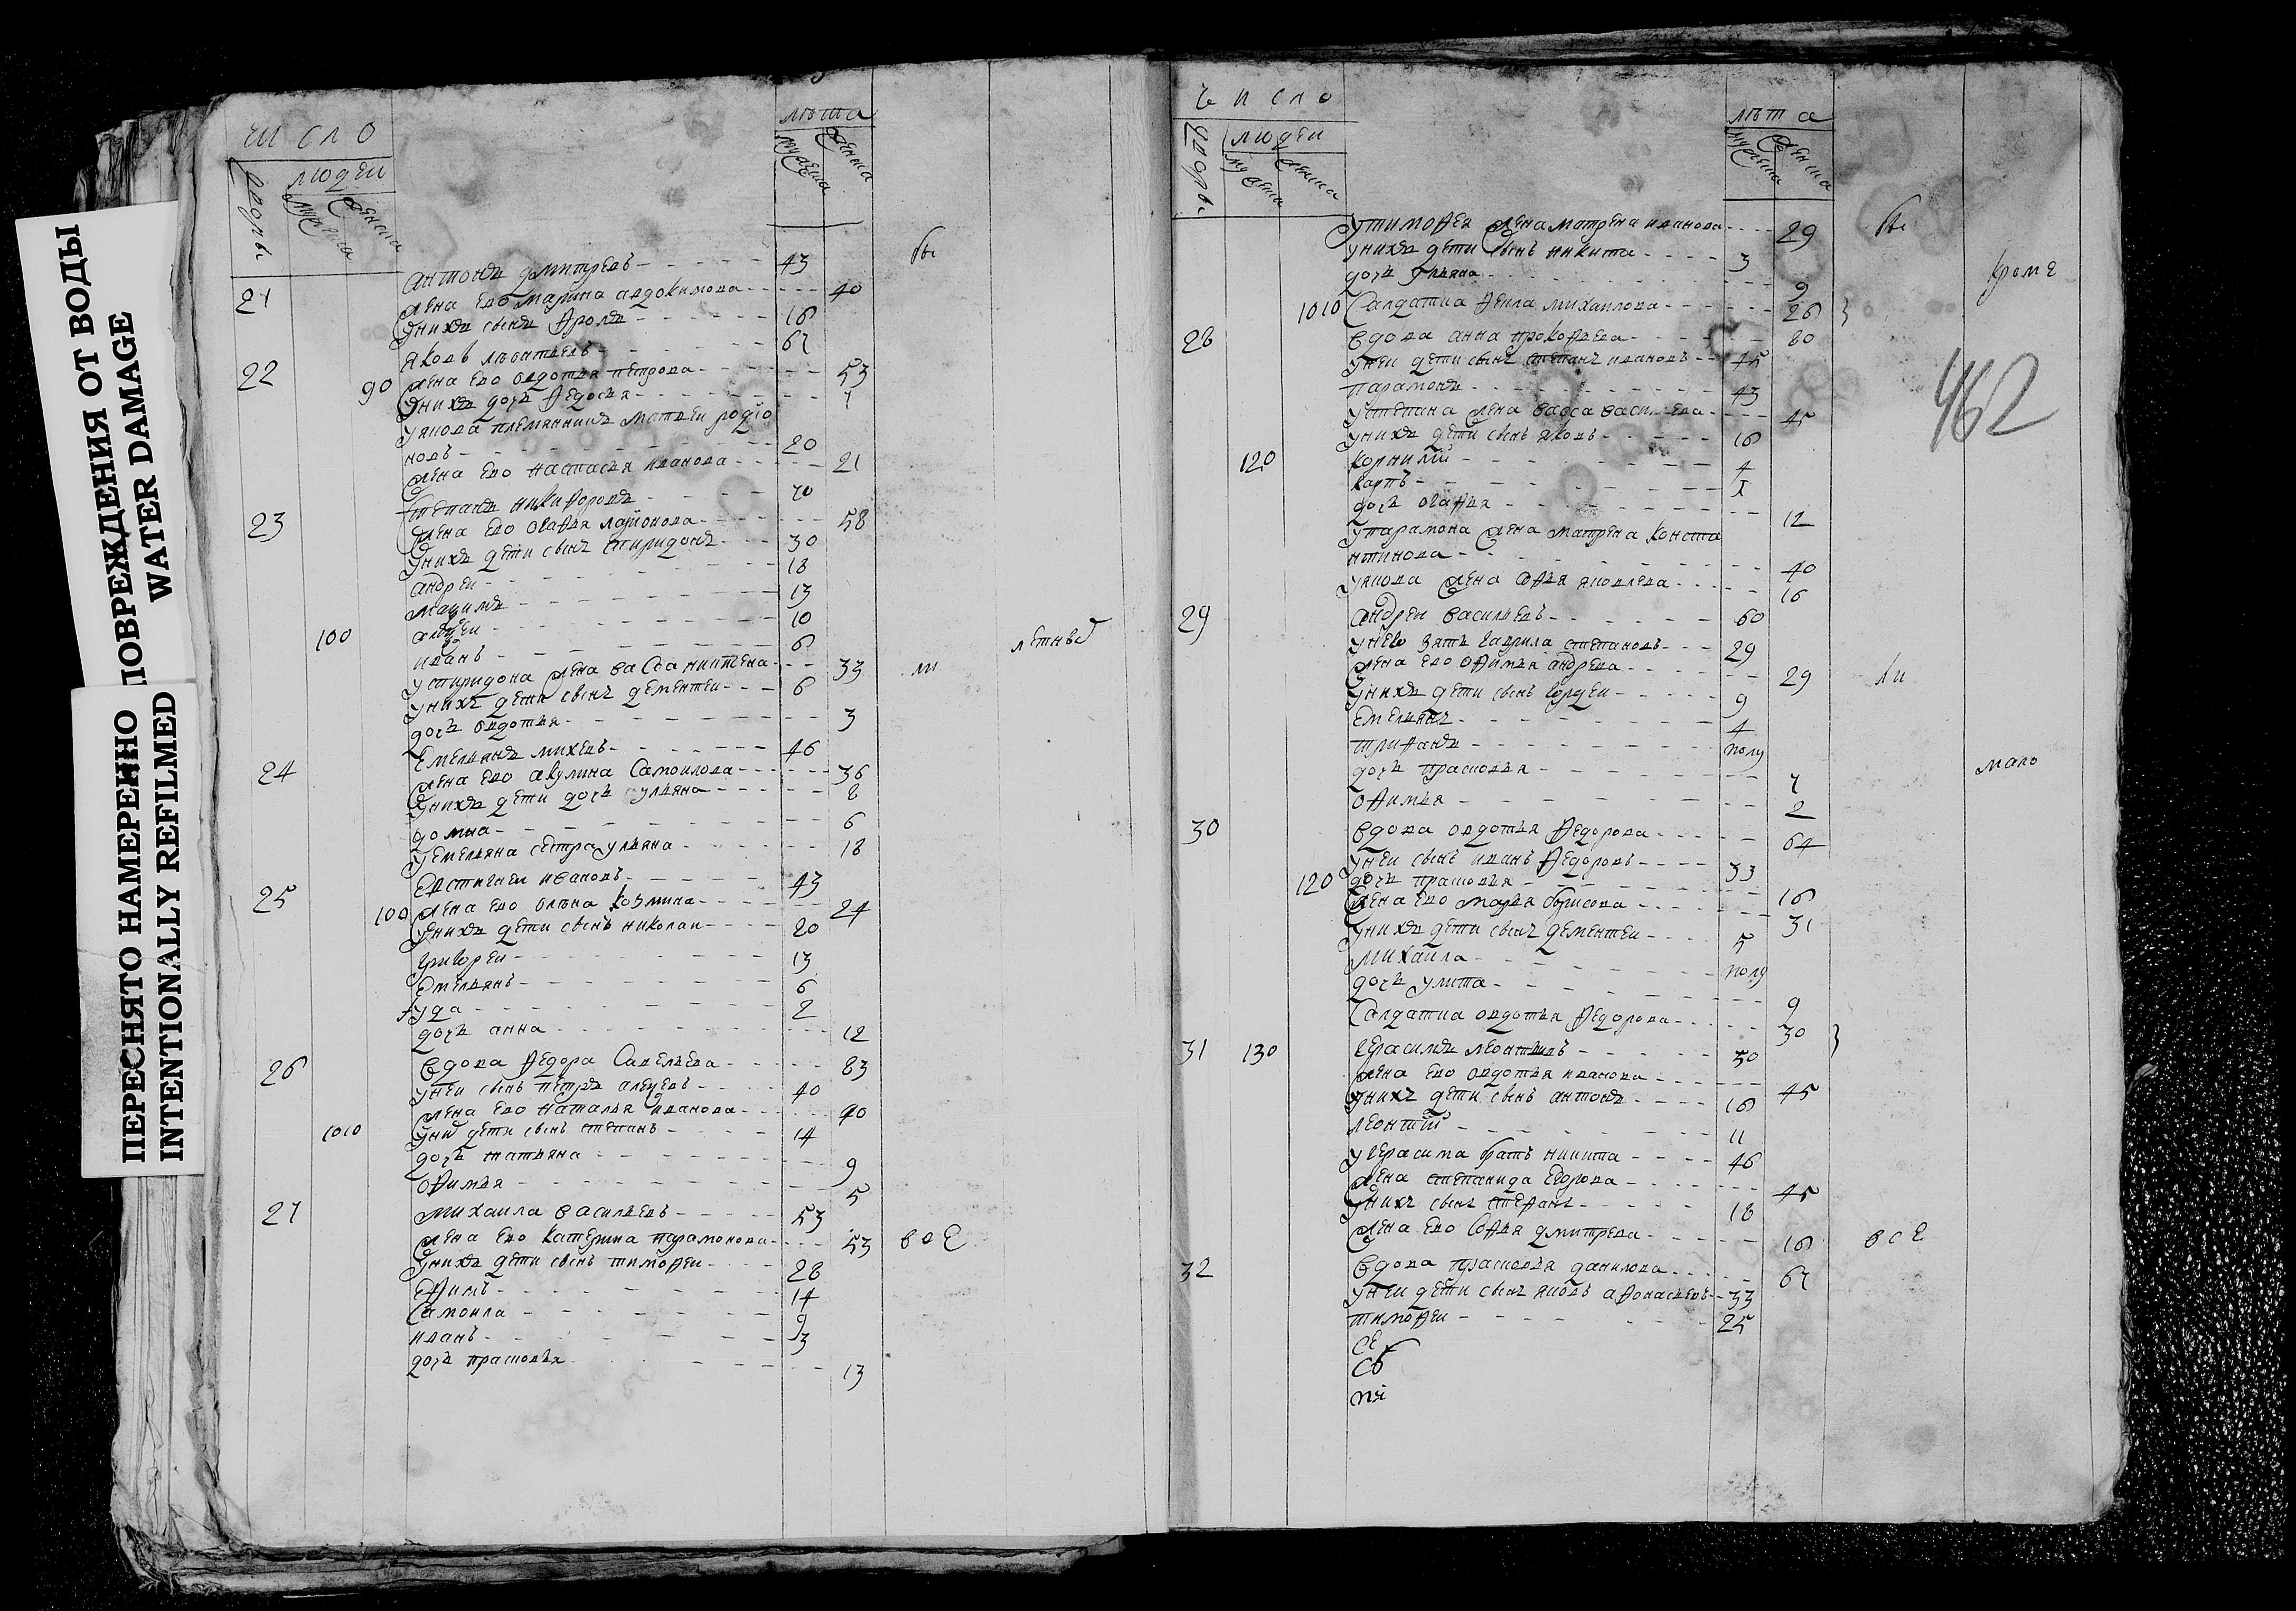 ПЕРЕСНЯТО НАМЕРЕННО ПОВРЕЖДЕНИЯ ОТ ВОДЫ
INTENTIONALLY REFILMED WATER DAMAGE
число
дворы
людеи
мужеска
женска
лѣта
мужеска
женска
бы
21 антонъ дмитревъ 43
жена ево марина авдокимова 40
унихъ сынъ фролъ 16
22 яковъ 67
90 жена ево овдотья петрова 53
унихъ дочь федосья 7
уякова племянникъ матвеи родио
новъ 20
жена ево настасья иванова 21
23 степанъ никифоровъ 70
жена ево огафья ларионова 58
унихъ дети сынъ спиридонъ 30
андреи 18
маѯимъ 13
100 алеѯеи 10
иванъ 6
успиридона жена васса никитена 33 ли летнѣ
унихъ дети сынъ дементеи 6
дочь овдотья 3
24 Емельянъ михевъ 46
жена ево акулина самоилова 36
унихъ дети дочь ульяна 8
домна 6
уемельяна сестра ульяна 18
25 Евстигнеи ивановъ 43
100 жена ево олѣна козмина 24
унихъ дети сынъ николаи 20
григореи 13
Емельянъ 6
гуда 2
дочь анна 12
26 вдова федора савельева 83
унеи сынъ петръ алеѯевъ 40
жена ево наталья иванова 40
1010 уни дети сынъ степанъ 14
дочь татьяна 9
офимья 5
27 михаила васильевъ 53
жена ево катерина парамонова 53 все
унихъ дети сынъ тимофеи 28
Ефимъ 14
самоила 9
иванъ 3
дочь прасковья 13
число
дворы
людеи
мужеска
женска
лѣта
мужеска
женска
утимофея жена матрена иванова 29 бы
унихъ дети сынъ никита 3
дочь ульяна 9 кроме
1010 салдатка фекла михаилова 26
28 вдова анна прокофьева 80
унеи дети сынъ степанъ ивановъ 45
парамонъ 43
462
устепана жена васса васильева 45
унихъ дети сынъ яковъ 16
120 корнилїи 4
карпъ 1
дочь огафья 12
упарамона жена матрена конста
нтинова 40
уякова жена софья яковлева 16
29 андреи васильевъ 60
унево зять гаврила степановъ 29
жена ево офимья андрева 29 ли
унихъ дети сынъ гордеи 9
Емельянъ 4
трифанъ полу
дочь прасковья 7 мало
офимья 2
30 вдова овдотья федорова 64
унеи сынъ иванъ федоровъ 33
120 дочь прасковья 16
жена ево марья борисова 31
унихъ дети сынъ дементеи 5
михаила полу
дочь улита 9
салдатка овдотья федорова 30
31 130 герасимъ леонтьевъ 50
жена ево овдотья иванова 45
унихъ дети сынъ антонъ 16
леонтїи 11
угерасима братъ никита 46
жена степанида Егорова 45
унихъ сынъ стефанъ 18
жена ево софья дмитрева 16 все
32 вдова прасковья данилова 67
унеи дети сынъ яковъ афонасьевъ 33
тимофеи 25